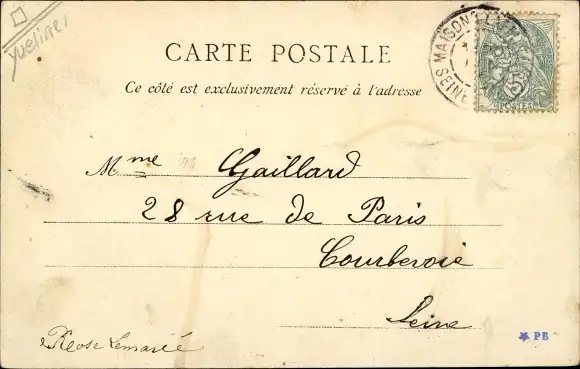 yvelines
MAISONS
SEINE
5
POSTES
CARTE POSTALE
Ce côté est exclusivement réservé à l'adresse
Mme Gaillard
28 rue de Paris
Courbevoie
Seine
Lemarié
PE